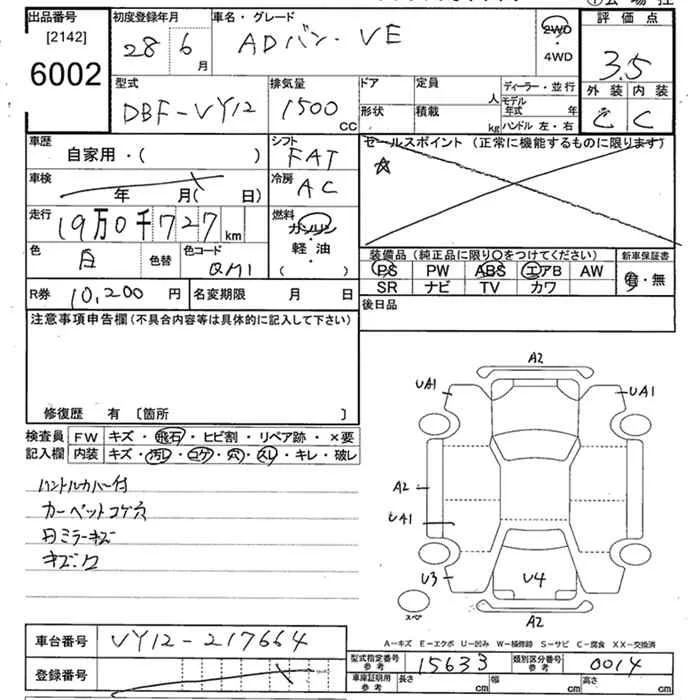 出品番号 [2142] 6002
初度登録年月 28年 6月
車名・グレード ADバン・VE
2WD・4WD
評価点 3.5
型式 DBF-VY12
排気量 1500 CC
ドア 形状
定員 人
積載 kg
ディーラー・並行
モデル年式 年
ハンドル 左・右
外装 C 内装 C
車歴 自家用・( )
シフト FAT
セールスポイント (正常に機能するものに限ります)
☆
車検 年 月( 日)
冷房 AC
走行 19万0千727 km
燃料 ガソリン
軽油
( )
色 白 色替 色コード QM1
装備品 (純正品に限り〇をつけてください)
新車保証書
PS PW ABS エアB AW
有・無
SR ナビ TV カワ
R券 10,200円 名変期限 月 日
後日品
注意事項申告欄 (不具合内容等は具体的に記入して下さい)
修復歴 有 〔箇所 〕
検査員記入欄
FW キズ・飛石・ヒビ割・リペア跡・×要
内装 キズ・汚レ・コゲ・穴・スレ・キレ・破レ
ハンドルカバー付
カーペットコゲ穴
月ミラーキズ
A2
UA1 UA1
A2
UA1
U3 U4
スペア
A2
A-キズ E-エクボ U-凹み W-補修跡 S-サビ C-腐食 XX-交換済
車台番号 VY12-217664
登録番号
型式指定番号 参考 15633
類別区分番号 参考 0014
車庫証明用 参考 長さ cm 幅 cm 高さ cm